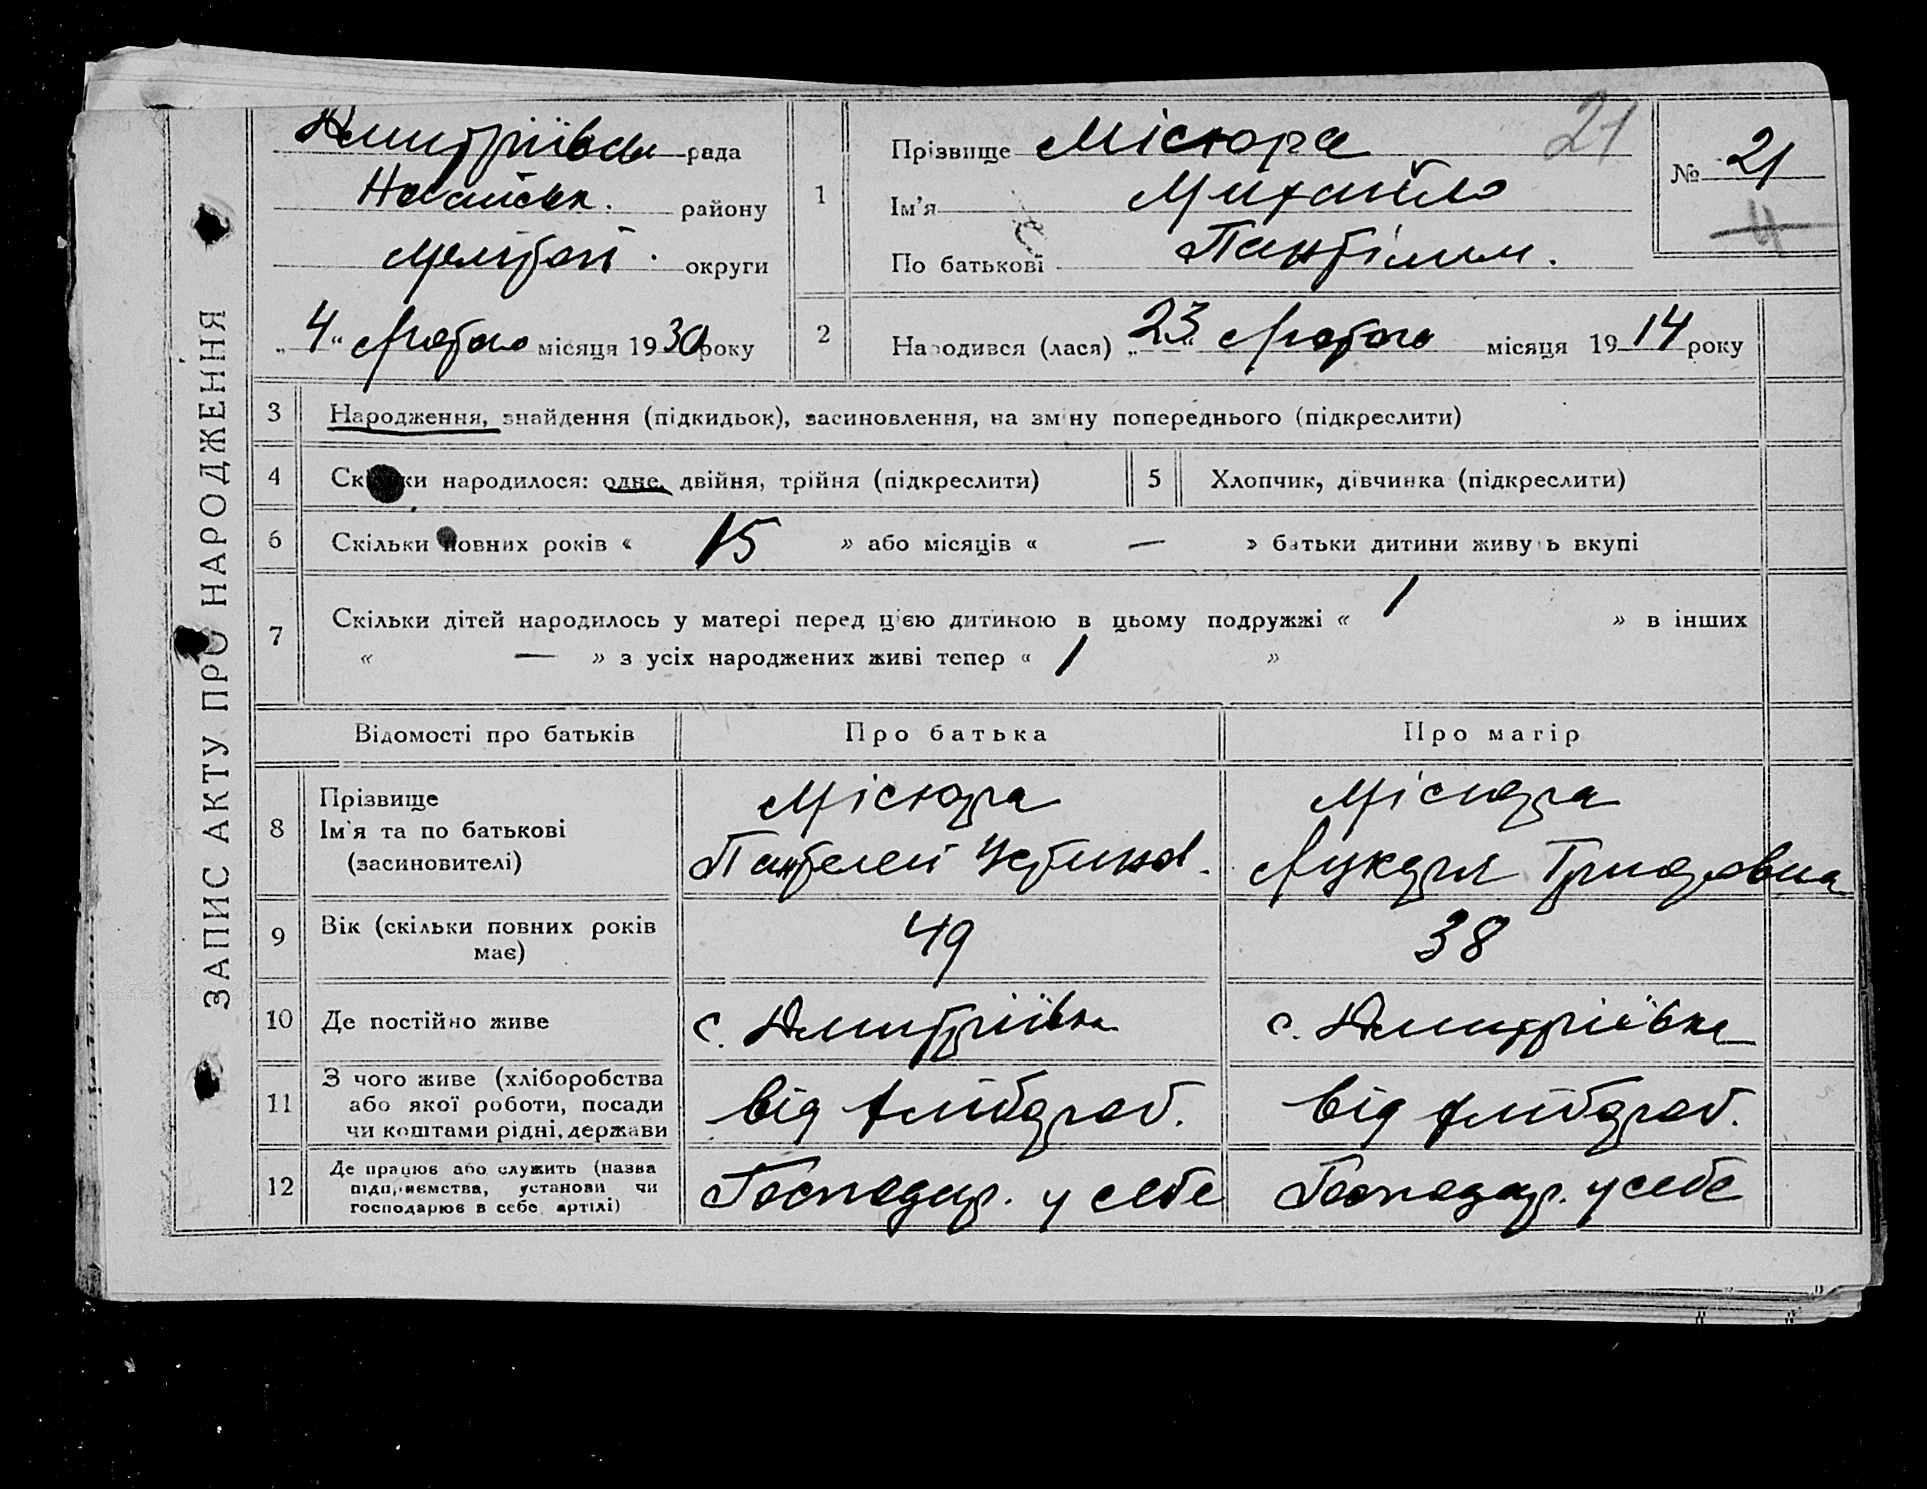 ЗАПИС АКТУ ПРО НАРОДЖЕННЯ
Дмитріївська рада
Ногайськ. району
Мелітоп округи
„4“ Лютого місяця 1930 року
1
Прізвище Місюра 21
Ім'я Михайло
По батькові Пантілим.
№ 21
4
2
Народився (лася) „23“ Лютого місяця 1914 року
3 Народження, знайдення (підкидьок), засиновлення, на зміну попереднього (підкреслити)
4 Скільки народилося: одне, двійня, трійня (підкреслити) 5 Хлопчик, дівчинка (підкреслити)
6 Скільки повних років « 15 » або місяців « — » батьки дитини живуть вкупі
7 Скільки дітей народилось у матері перед цією дитиною в цьому подружжі « 1 » в інших
« — » з усіх народжених живі тепер « 1 »
Відомості про батьків Про батька Про матір
8 Прізвище
Ім'я та по батькові
(засиновителі)
Місюра
Пантелей Устинов.
Місюра
Лукерія Григоровна
9 Вік (скільки повних років
має)
49 38
10 Де постійно живе с. Дмитріївка с. Дмитріївка
11 З чого живе (хліборобства
або якої роботи, посади
чи коштами рідні, держави
від хліборob. від хліборob.
12 Де працює або служить (назва
підприємства, установи чи
господарює в себе, артілі)
Господар. у себе Господар. у себе